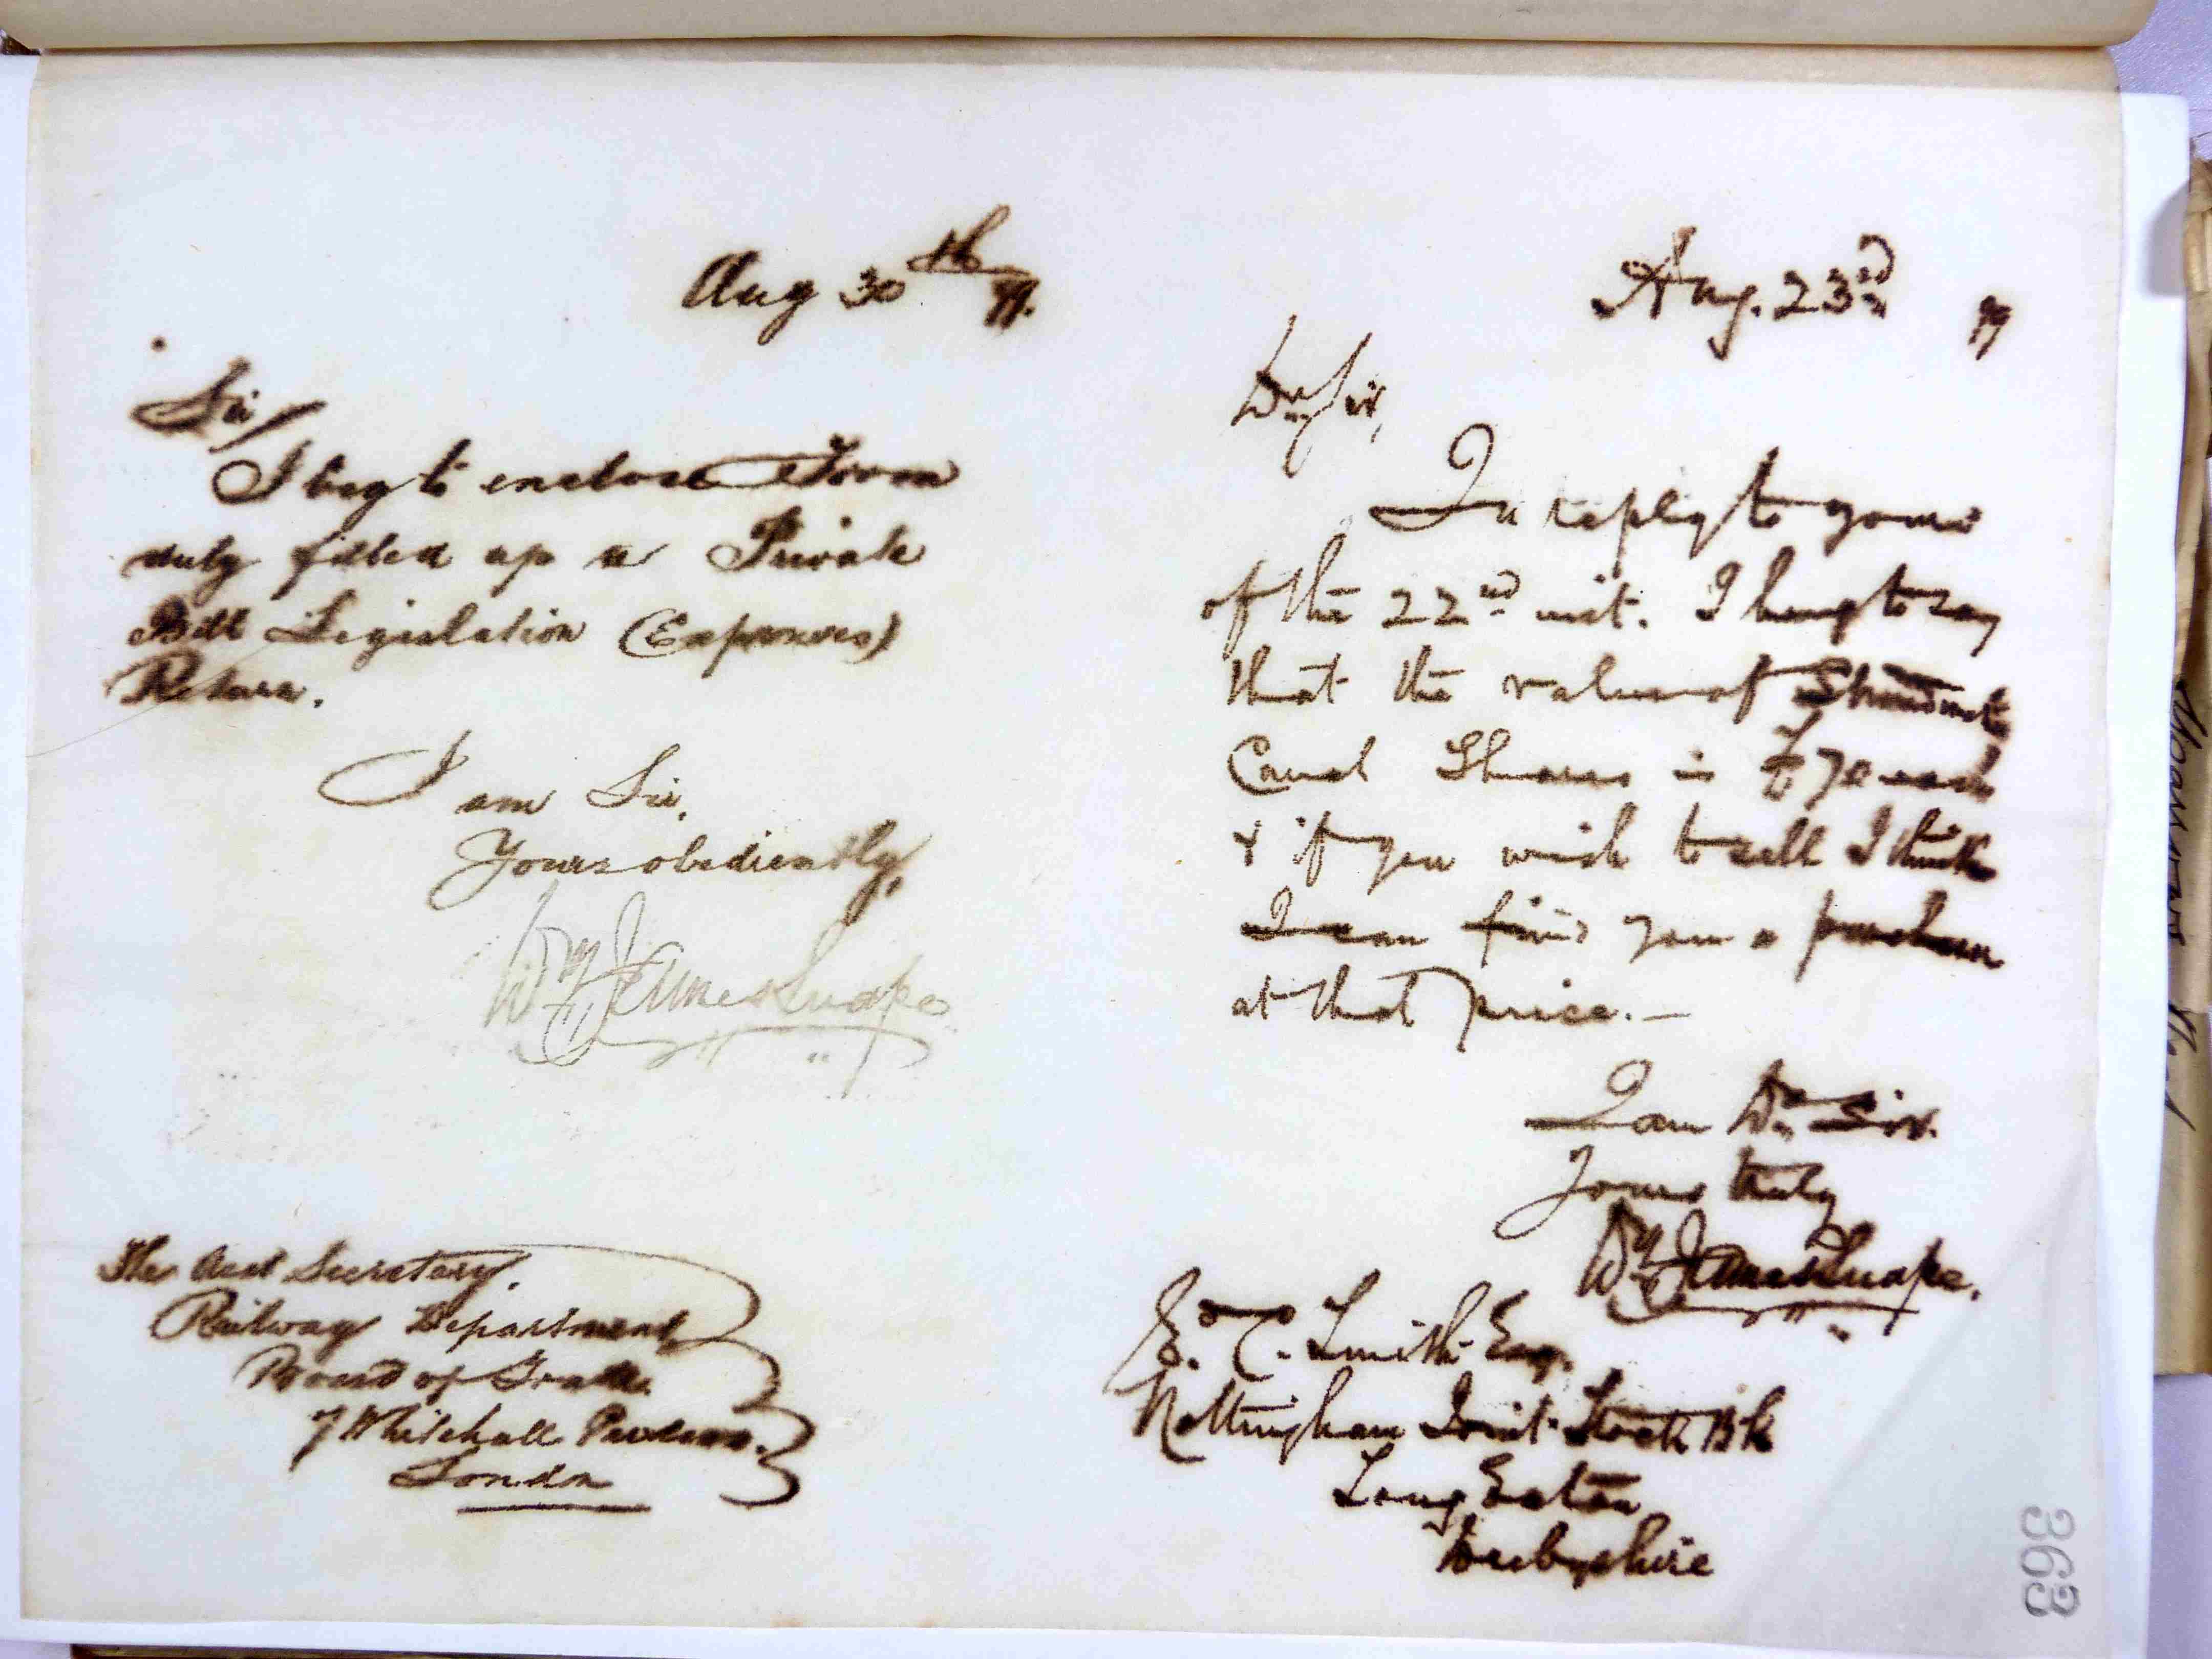 Aug 30th 99.
Sir/
I beg to enclose Form
duly filled up re Private
Bill Legislation (Expenses)
Return.
I am Sir,
Yours obediently,
Wm James Snape
The Asst Secretary.
Railway Department
Board of Trade
7 Whitehall Gardens.
London
Aug. 23rd 99
Dr Sir,
In reply to yours
of the 22nd inst. I beg to say
that the value of Stroudwater
Canal Shares is £70 each
& if you wish to sell I think
I can find you a purchaser
at that price. —
I am Dr Sir.
Yours truly
Wm James Snape.
E. C. Smith Esq.
Nottingham Joint Stock Bk
Long Eaton
Derbyshire
363